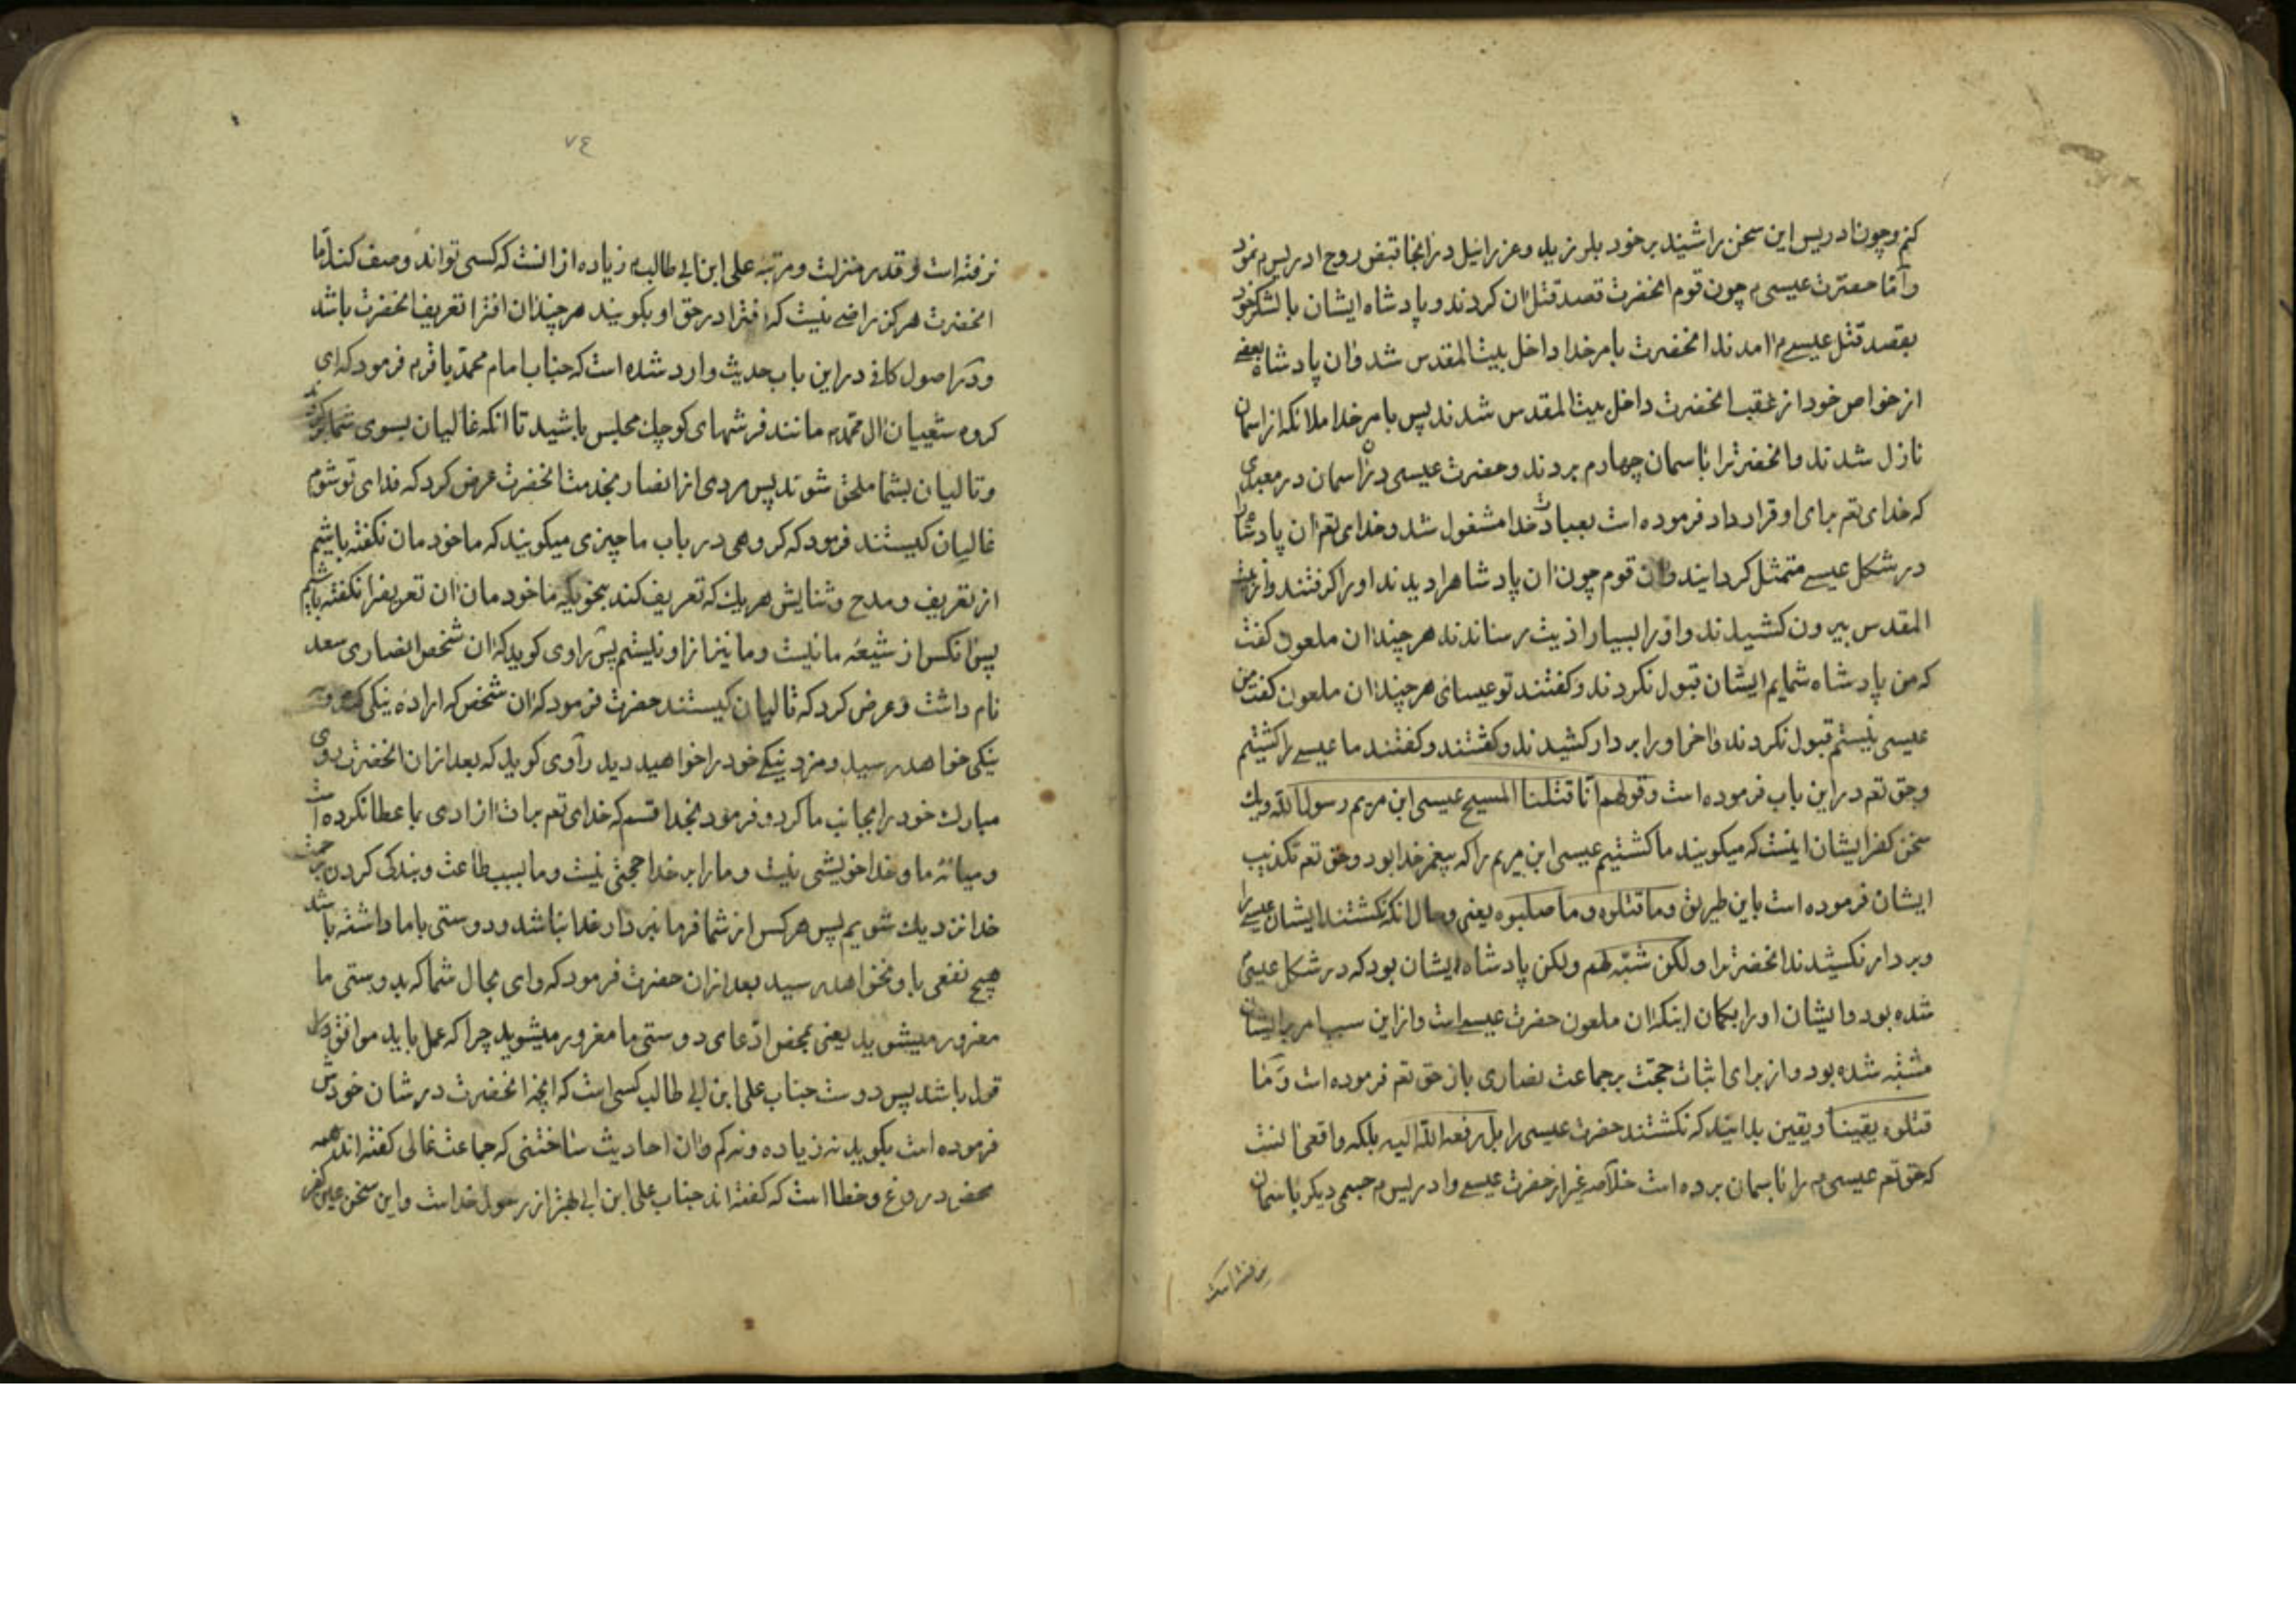 کنم و چون ادریس این سخن را شنید بر خود بلرزید و عزرائیل در انجا قبض روح ادریس م نمود
و اما حضرت عیسی م چون قوم انحضرت قصد قتل ان کردند و پادشاه ایشان با لشکر خود
بقصد قتل عیسی م امدند انحضرت بامر خدا داخل بیت المقدس شد و ان پادشاه بعضی
از خواص خود از عقب انحضرت داخل بیت المقدس شدند پس بامر خدا ملائکه از اسمان
نازل شدند و انحضرت را باسمان چهارم بردند و حضرت عیسی در ان اسمان در معبدی
که خدای تعم برای او قرارداد فرموده است بعبادت خدا مشغول شد و خدای تعم ان پادشاه را
در شکل عیسی متمثل کردانید و ان قوم چون ان پادشاه را دیدند او را کرفتند و از بیت
المقدس بیرون کشیدند و او را بسیار اذیت رساندند هر چند ان ملعون کفت
که من پادشاه شمایم ایشان قبول نکردند و کفتند تو عیسائی هر چند ان ملعون کفت من
عیسی نیستم قبول نکردند و اخر او را بر دار کشیدند و کشتند و کفتند ما عیسی را کشتیم
و حق تعم در این باب فرموده است و قولهم انا قتلنا المسیح عیسی ابن مریم رسول الله و یک
سخن کفر ایشان اینست که میکویند ما کشتیم عیسی ابن مریم را که پیغمبر خدا بود و حق تعم تکذیب
ایشان فرموده است باین طریق و ما قتلوه و ما صلبوه یعنی و حال انکه نکشتند ایشان عیسی را
و بر دار نکشیدند انحضرت را و لکن شبّه لهم و لکن پادشاه ایشان بود که در شکل عیسی
شده بود و ایشان او را بکمان اینکه ان ملعون حضرت عیسی است و از این سبب امر بر ایشان
مشتبه شده بود و از برای اثبات حجّت بر جماعت نصاری باز حق تعم فرموده است و ما
قتلوه یقینا و یقین بدانید که نکشتند حضرت عیسی را بل رفعه الله الیه بلکه واقعی انست
که حق تعم عیسی م را باسمان برده است خلاصه غیر از حضرت عیسی و ادریس م جسمی دیکر باسمان
نرفته است
٧٤
نرفته است و قدر منزلت و مرتبه علی ابن ابی طالب م زیاده از انست که کسی تواند وصف کند اما
انحضرت هرکز راضی نیست که افترا در حق او بکویند هر چند ان افترا تعریف انحضرت باشد
و در اصول کافی در این باب حدیث وارد شده است که جناب امام محمد باقر م فرمود که ای
کروه شیعیان ال محمد م مانند فرشهای کوچک مجلس باشید تا انکه غالیان بسوی شما برکردند
و تالیان بشما ملحق شوند پس مردی از انصار بخدمت انحضرت عرض کرد که فدای تو شوم
غالیان کیستند فرمود که کروهی در باب ما چیزی میکویند که ما خودمان نکفته باشیم
از تعریف و مدح و ثنایش هریک که تعریف کند بنحویکه ما خودمان ان تعریف را نکفته باشیم
پس انکس از شیعه ما نیست و ما نیز از او نیستیم پس راوی کوید که ان شخص انصاری سعد
نام داشت و عرض کرد که تالیان کیستند حضرت فرمود که ان شخص که اراده نیکی
نیکی خواهد رسید و مزد نیکی خود را خواهید دید راوی کوید که بعد از ان انحضرت روی
مبارک خود را بجانب ما کرد و فرمود بخدا قسم که خدای تعم برات ازادی با عطا نکرده است
و میانه ما و خدا خویشی نیست و ما را بر خدا حجتی نیست و ما بسبب طاعت و بندکی کردن
خدا نزدیک شویم پس هر کس از شما فرمانبردار خدا نباشد و دوستی با ما داشته باشد
هیچ نفعی باو نخواهد رسید بعد از ان حضرت فرمود که وای بحال شما که بدوستی ما
مغرور میشوید یعنی بمحض ادعای دوستی ما مغرور میشوید چرا که عمل باید موافق
قول باشد پس دوست جناب علی ابن ابی طالب کسی است که انچه انحضرت در شان خودش
فرموده است بکوید نه زیاده و نه کم و ان احادیث ساختنی که جماعت غالی کفته اند همه
محض دروغ و خطا است که کفته اند جناب علی ابن ابی بهتر از رسول خداست و این سخن عین کفر